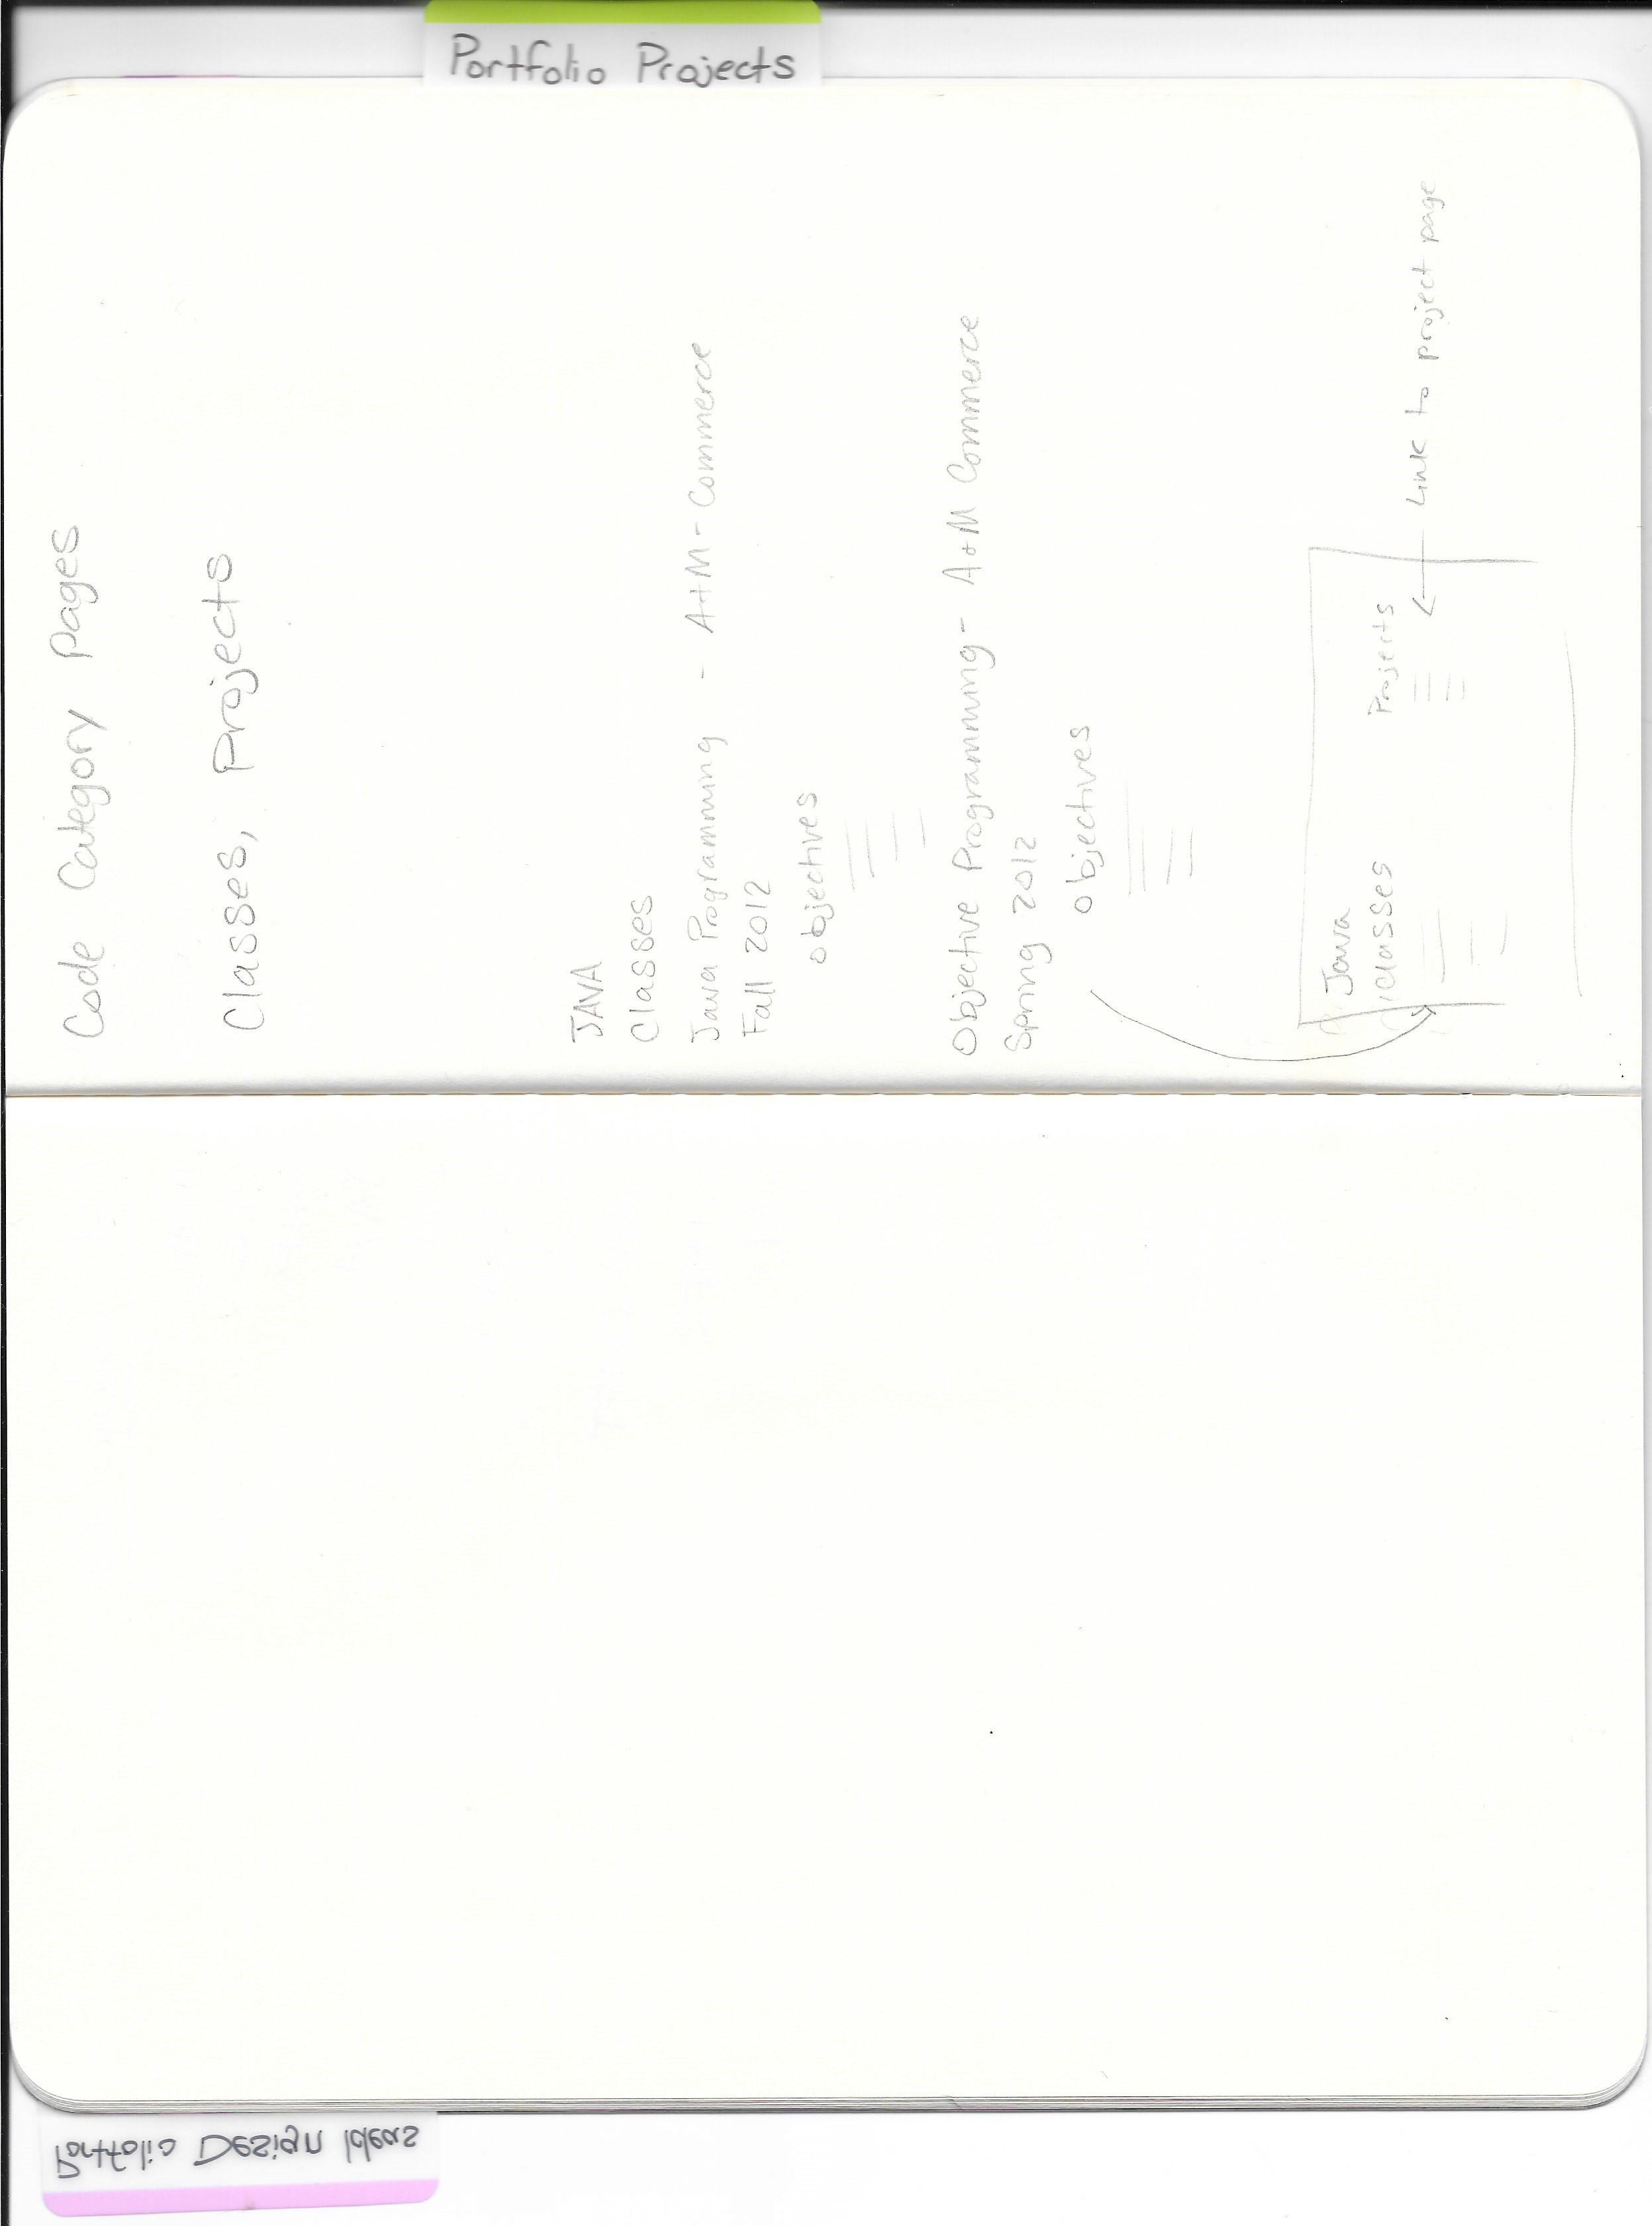 Portfolio Projects
Code Category Pages
Classes, Projects
JAVA
Classes
Java Programming - A+M-Commerce
Fall 2012
objectives
Objective Programming- A+M Commerce
Spring 2012
objectives
Java
classes
Projects
Link to project page
Portfolio Design Ideas